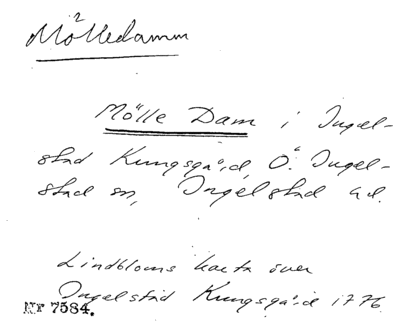 Mölledamm
Mölle Dam i Ingel-
stad Kungsgård, Ö. Ingel-
stad sn, Ingelstad hd.
Lindbloms karta över
Ingelstad Kungsgård 1776.
Nr 7584.